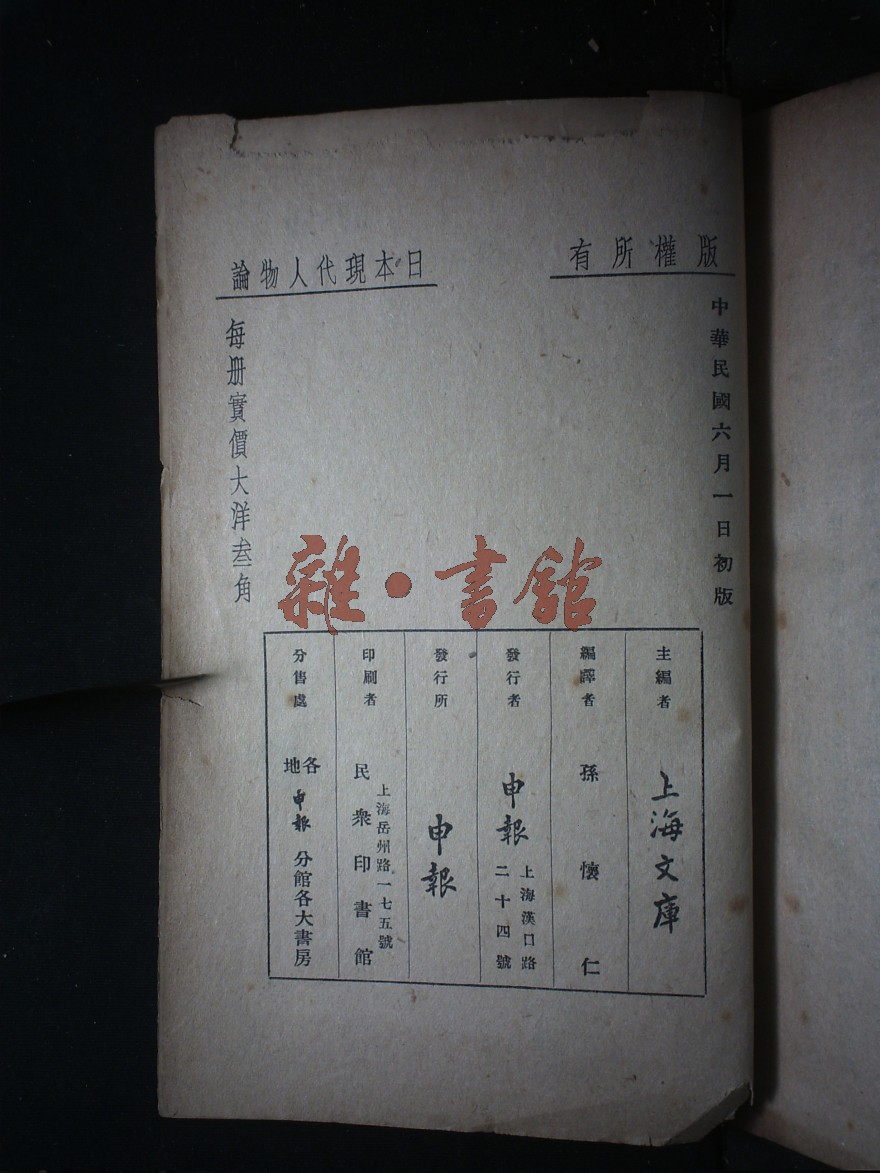 版權所有
中華民國六月一日初版
主編者 上海文庫
編譯者 孫懷仁
發行者 申報
上海漢口路
二十四號
發行所 申報
印刷者 民衆印書館
上海岳州路一七五號
分售處 各地申報分館各大書房
日本現代人物論
每册實價大洋叁角
雜·書館